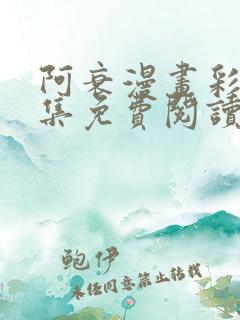 阿衰漫畫彩
集免費閱讀
鲍伊
未经同意禁止转载